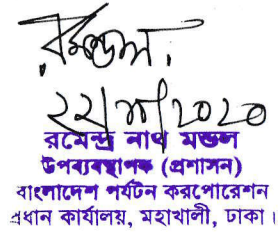 রমেন্দ্র নাথ মন্ডল
উপব্যবস্থাপক (প্রশাসন)
বাংলাদেশ পর্যটন করপোরেশন
প্রধান কার্যালয়, মহাখালী, ঢাকা।